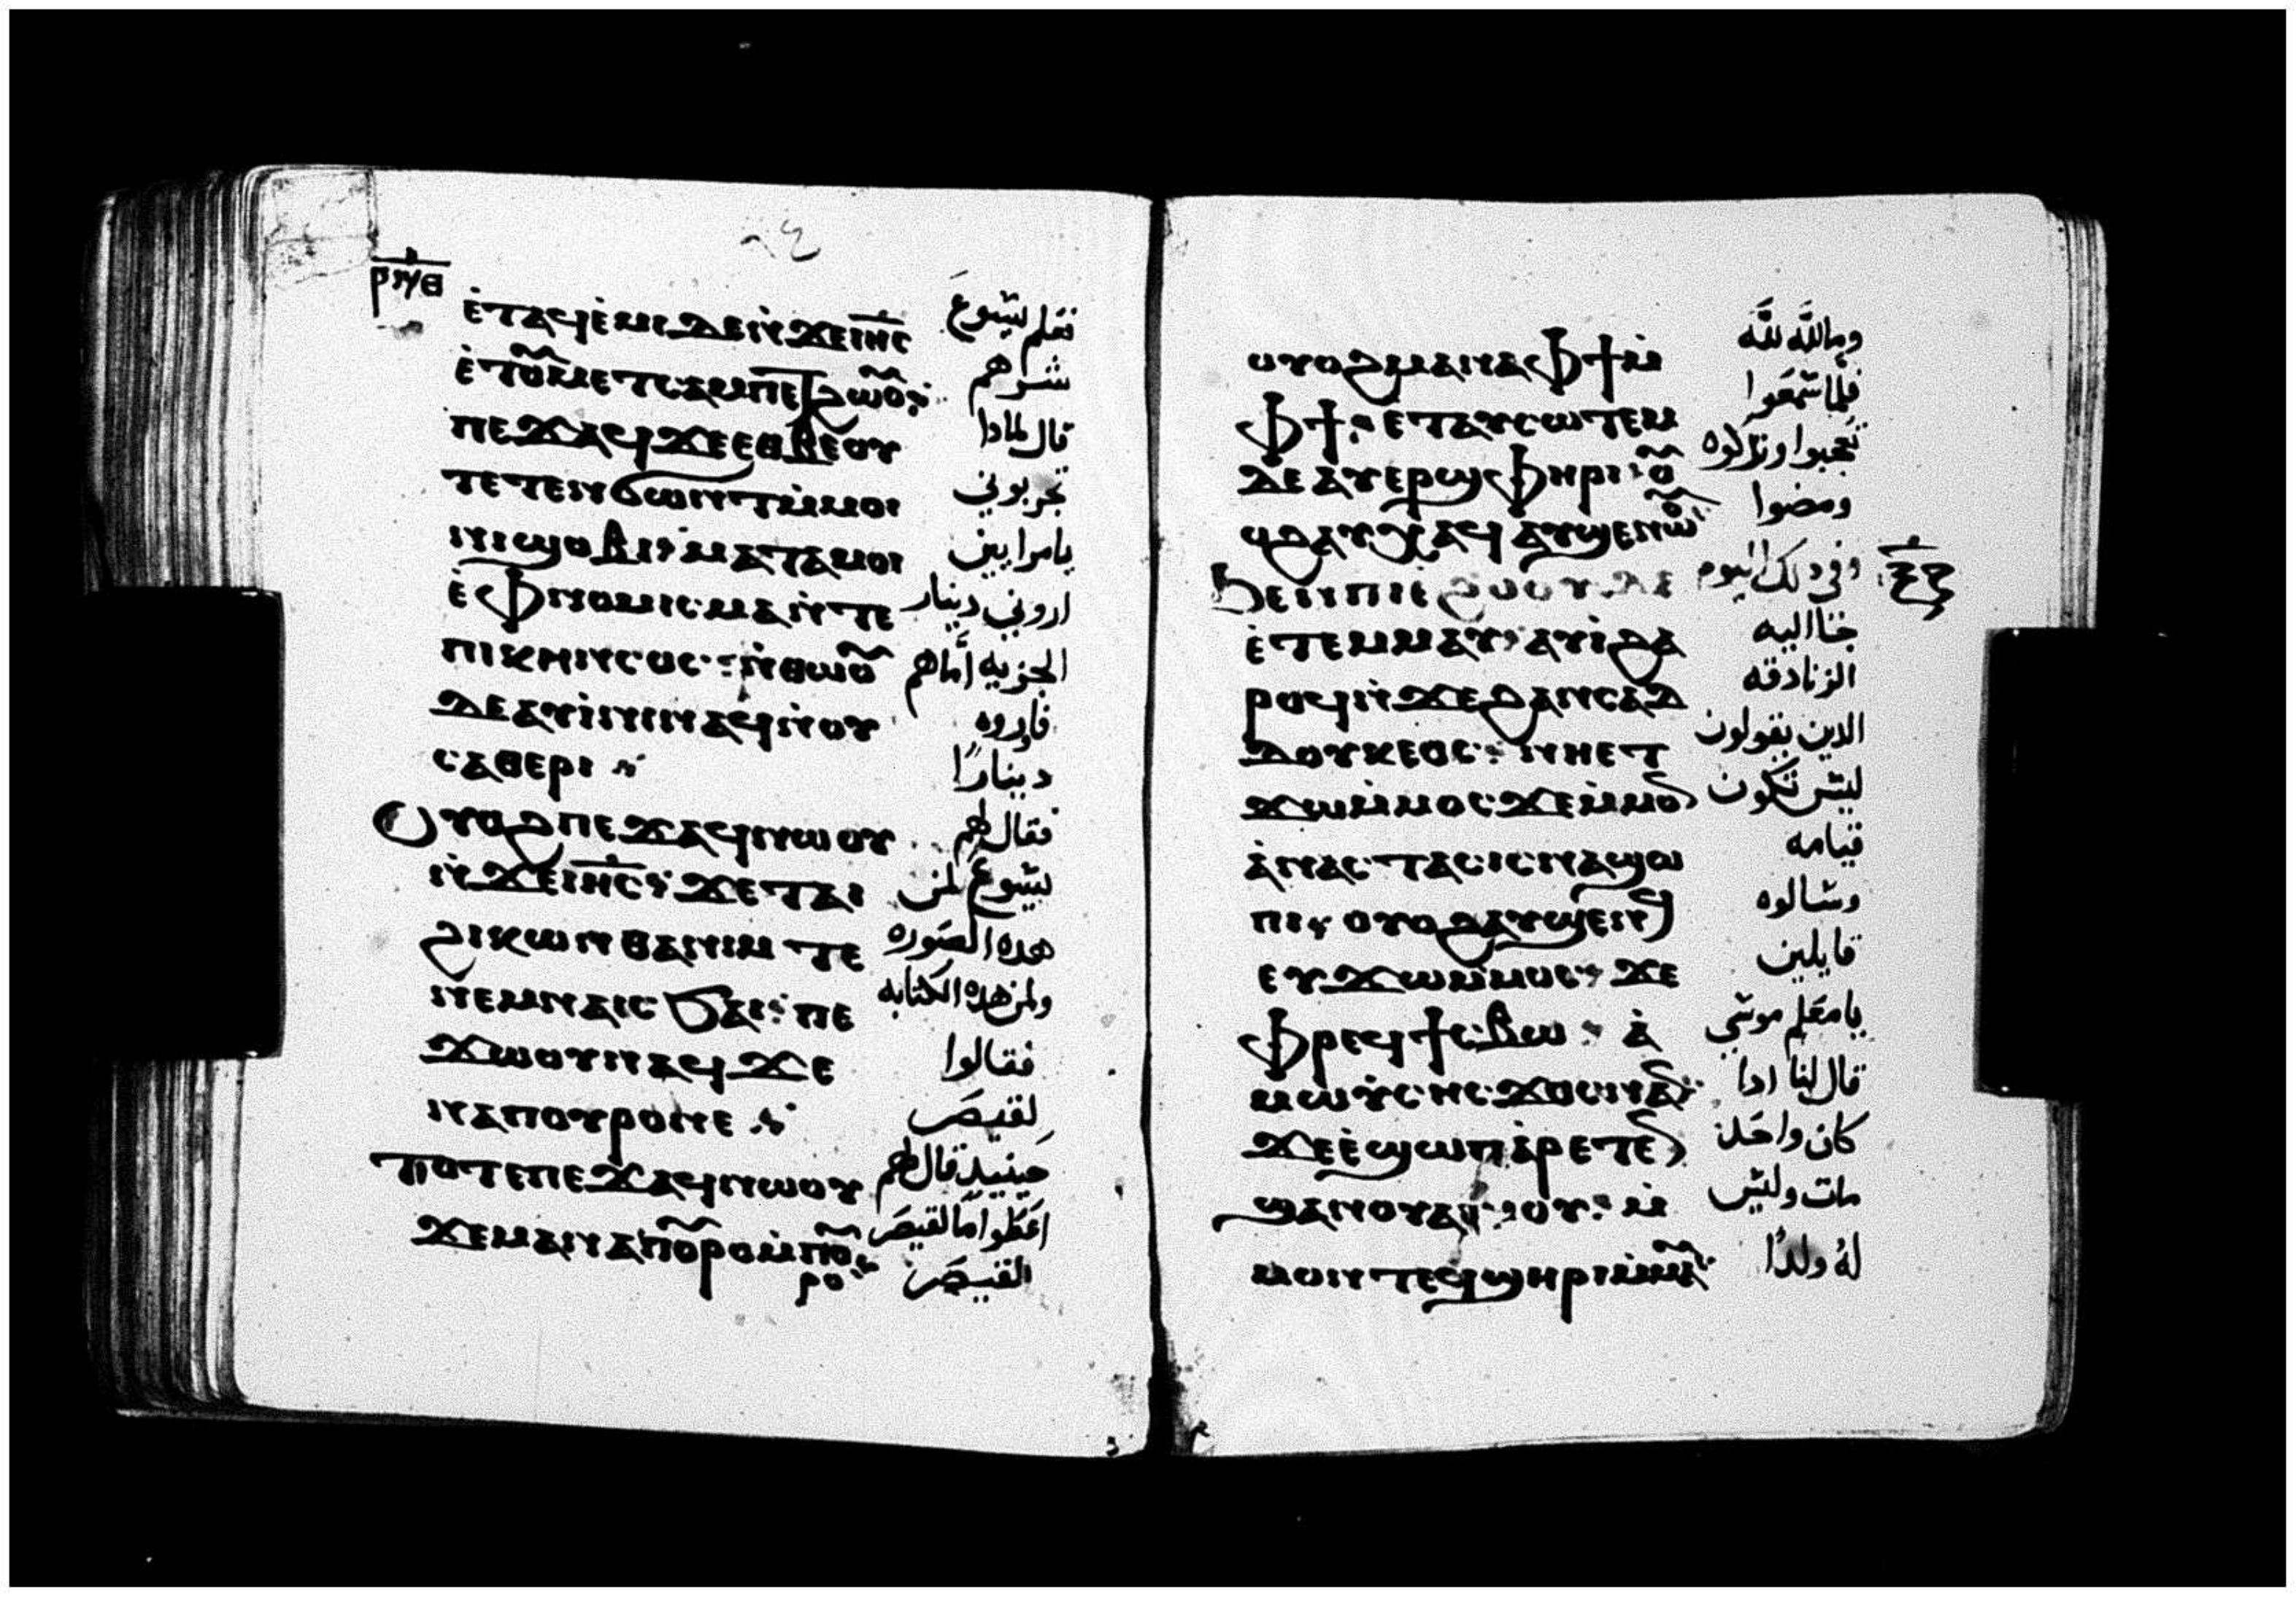 ⲉⲧⲁϥⲉⲙⲓ ⲇⲉ ⲛϫⲉ ⲓⲏⲥ فعلم يسوع
ⲉⲧⲟⲩⲙⲉⲧⲥⲁⲙⲡⲉⲧϩⲱⲟⲩ شرهم
ⲡⲉϫⲁϥ ϫⲉ ⲉⲑⲃⲉⲟⲩ قال لمادا
ⲧⲉⲧⲉⲛϭⲱⲛⲧ ⲙⲙⲟⲓ تجربوني
ⲛⲓϣⲟⲃⲓ ⲙⲁⲧⲁⲙⲟⲓ يامرايين
ⲉⲫⲛⲟⲙⲓⲥⲙⲁ ⲛⲧⲉ اروني دينار
ⲡⲓⲕⲏⲛⲥⲟⲥ ⲛⲑⲱⲟⲩ الجزيه اماهم
ⲇⲉ ⲁⲩⲓⲛⲓ ⲛⲁϥ ⲛⲟⲩ فاروه
ⲥⲁⲑⲉⲣⲓ دينارًا
ⲟⲩⲟϩ ⲡⲉϫⲁϥ ⲛⲱⲟⲩ فقال لهم
ⲛϫⲉ ⲓⲏⲥ ϫⲉ ⲧⲁⲓ يسوع لمن
ϩⲓⲕⲱⲛ ⲑⲁⲛⲓⲙ ⲧⲉ هده الصوره
ⲛⲉⲙ ⲛⲁⲓⲥϧⲁⲓ ⲡⲉ ولمن هده الكتابه
ϫⲱⲟⲩ ⲛⲁϥ ϫⲉ فقالوا
ⲛⲁ ⲡⲟⲩⲣⲟ ⲛⲉ لقيصر
ⲧⲟⲧⲉ ⲡⲉϫⲁϥ ⲛⲱⲟⲩ حينيد قال لهم
ϫⲉ ⲙⲁ ⲛⲁ ⲡⲟⲩⲣⲟ ⲙⲡⲟⲩ اعطوا ما لقيصر
ⲣⲟ القيصر
ⲟⲩⲟϩ ⲙⲁ ⲛⲁ ⲫϯ ⲙ وما لله لله
ⲫϯ ⲉⲧⲁⲩⲥⲱⲧⲉⲙ فلما سمعوا
ⲇⲉ ⲁⲩⲉⲣϣⲫⲏⲣⲓ ⲟⲩ تعجبوا وتركوه
ⲟϩ ⲁⲩⲭⲁϥ ⲁⲩϣⲉⲛⲱⲟⲩ ومضوا
ϧⲉⲛ ⲡⲓⲉϩⲟⲟⲩ ⲇⲉ وفي دلك اليوم
ⲉⲧⲉⲙⲙⲁⲩ ⲁⲩⲓ ϩⲁ جا اليه
ⲣⲟϥ ⲛϫⲉ ϩⲁⲛⲥⲁⲇ الزنادقه
ⲇⲟⲩⲕⲉⲟⲥ ⲛⲏⲉⲧ الدين يقولون
ϫⲱ ⲙⲙⲟⲥ ϫⲉ ⲙⲙⲟⲛ ليس تكون
ⲁⲛⲁⲥⲧⲁⲥⲓⲥ ⲛⲁϣⲱ قيامه
ⲡⲓ ⲟⲩⲟϩ ⲁⲩϣⲉⲛϥ وسالوه
ⲉⲩϫⲱ ⲙⲙⲟⲥ ϫⲉ قايلين
ⲫⲣⲉϥϯⲥⲃⲱ ⲁ يامعلم موسي
ⲙⲱⲩⲥⲏⲥ ϫⲟⲥ ⲛⲁⲛ قال لنا ادا
ϫⲉ ⲉϣⲱⲡ ⲁⲣⲉⲧⲉⲛ كان واحد
ϣⲁⲛ ⲟⲩⲁⲓ ⲙⲟⲩ ⲙ مات وليس
ⲙⲟⲛⲧⲉϥ ϣⲏⲣⲓ ⲙⲙⲁⲩ له ولدًا